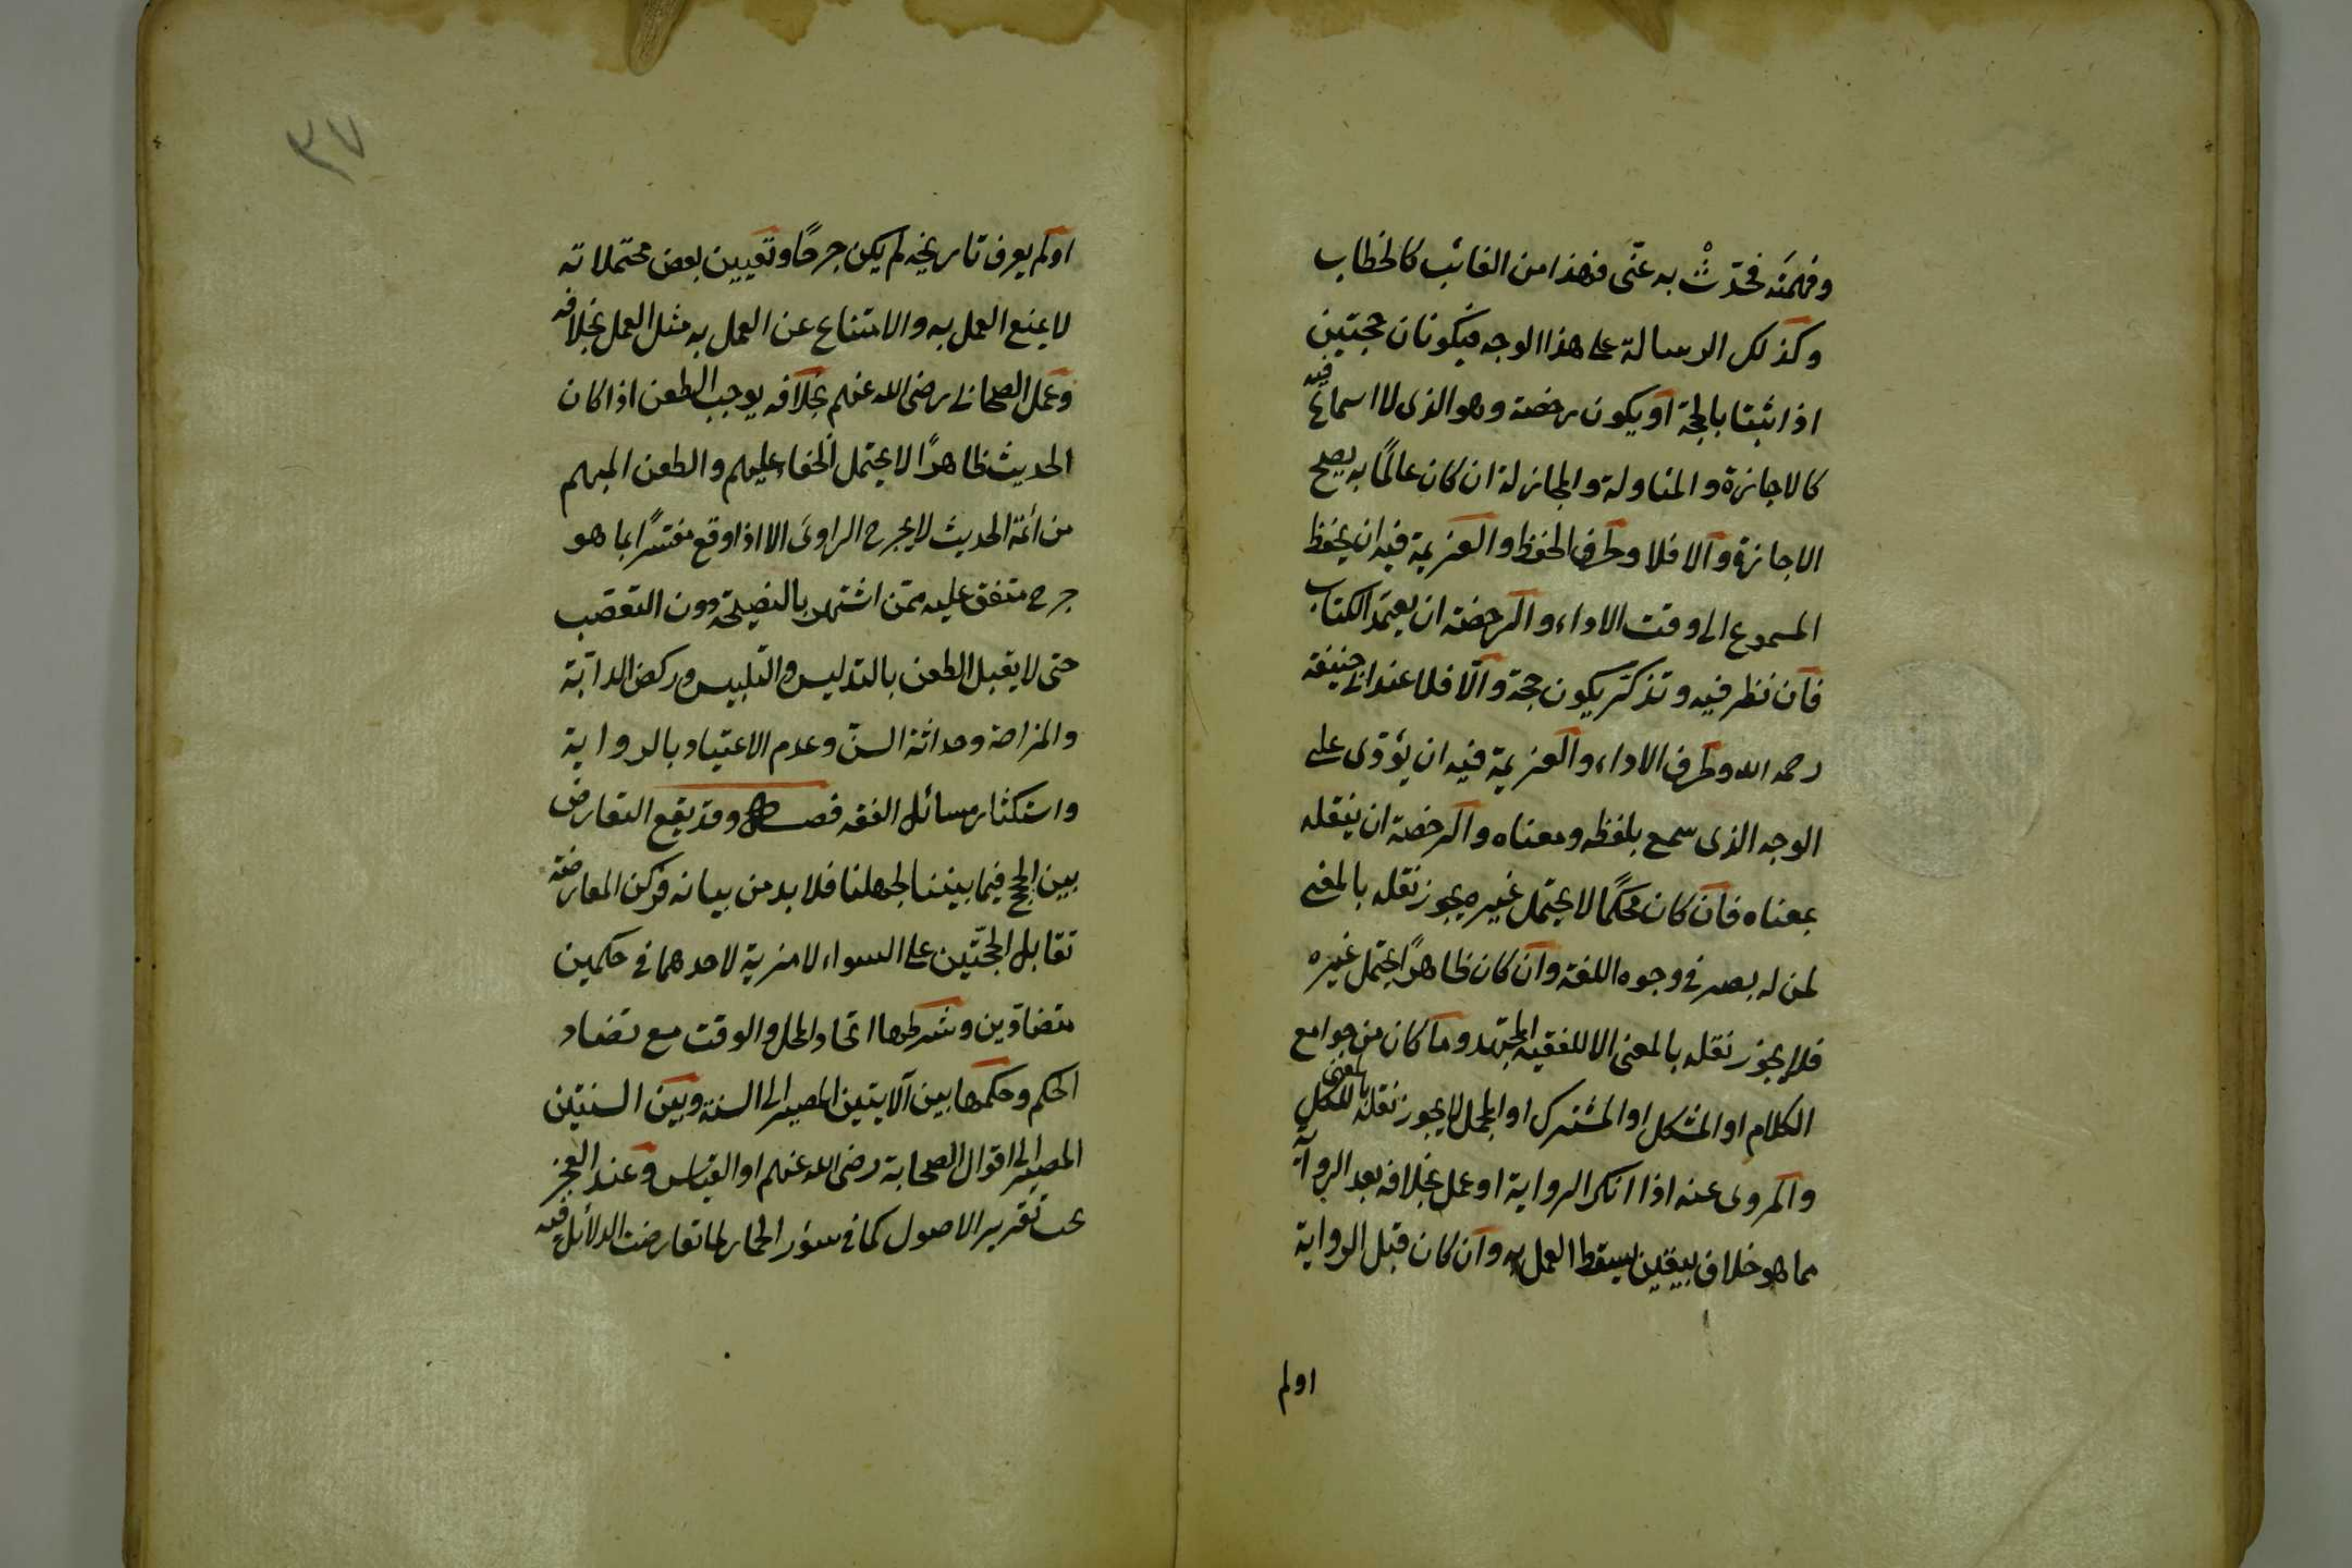 وفهمته فحدّثْ به عنّى فهذا من الغائب كالخطاب
وكذلك الرسالة على هذا الوجه فيكونان حجتين
اذا ثبتا بالحجة او يكون رخصة وهو الذى لا اسماع فيه
كالاجازة والمناولة والمجاز له ان كان عالمًا به يصح
الاجازة والا فلا وطرف الحفظ والعزيمة فيه ان يحفظ
المسموع الى وقت الاداء والرخصة ان يعتمد الكتاب
فان نظر فيه وتذكر يكون حجة والّا فلا عند ابى حنيفة
رحمه الله وطرف الاداء والعزيمة فيه ان يؤدى على
الوجه الذى سمع بلفظه ومعناه والرخصة ان ينقله
بمعناه فان كان محكمًا لا يحتمل غيره يجوز نقله بالمعنى
لمن له بصر فى وجوه اللغة وان كان ظاهرًا يحتمل غيره
فلا يجوز نقله بالمعنى الا للفقيه المجتهد وما كان من جوامع
الكلام او المشكل او المشترك او المجمل لا يجوز نقله بالمعنى للكل
والمروى عنه اذا انكر الرواية او عمل بخلافه بعد الرواية
مما هو خلاف بيقين يسقط العمل به وان كان قبل الرواية
اولم
٣٧
اولم يعرف تاريخه لم يكن جرحًا وتعيين بعض محتملاته
لا يمنع العمل به والامتناع عن العمل به مثل العمل بخلافه
وعمل الصحابى رضى الله عنهم بخلافه يوجب الطعن اذا كان
الحديث ظاهرًا لا يحتمل الخفاء عليهم والطعن المبهم
من ائمة الحديث لا يجرح الراوى الا اذا وقع مفسّرًا بما هو
جرح متفق عليه ممن اشتهر بالنصيحة دون التعصّب
حتى لا يقبل الطعن بالتدليس والتلبيس وركض الدابّة
والمزاح وحداثة السنّ وعدم الاعتياد بالرواية
واستكثار مسائل الفقه فصل وقد يقع التعارض
بين الحجج فيما بيننا لجهلنا فلا بد من بيانه فركن المعارضة
تقابل الحجّتين على السواء لا مزية لاحدهما فى حكمين
متضادين وشرطها اتحاد المحل والوقت مع تضاد
الحكم وحكمها بين الآيتين المصير الى السنة وبين السنتين
المصير الى اقوال الصحابة رضى الله عنهم او القياس وعند العجز
يجب تقرير الاصول كما فى سؤر الحمار لما تعارضت الدلائل فيه